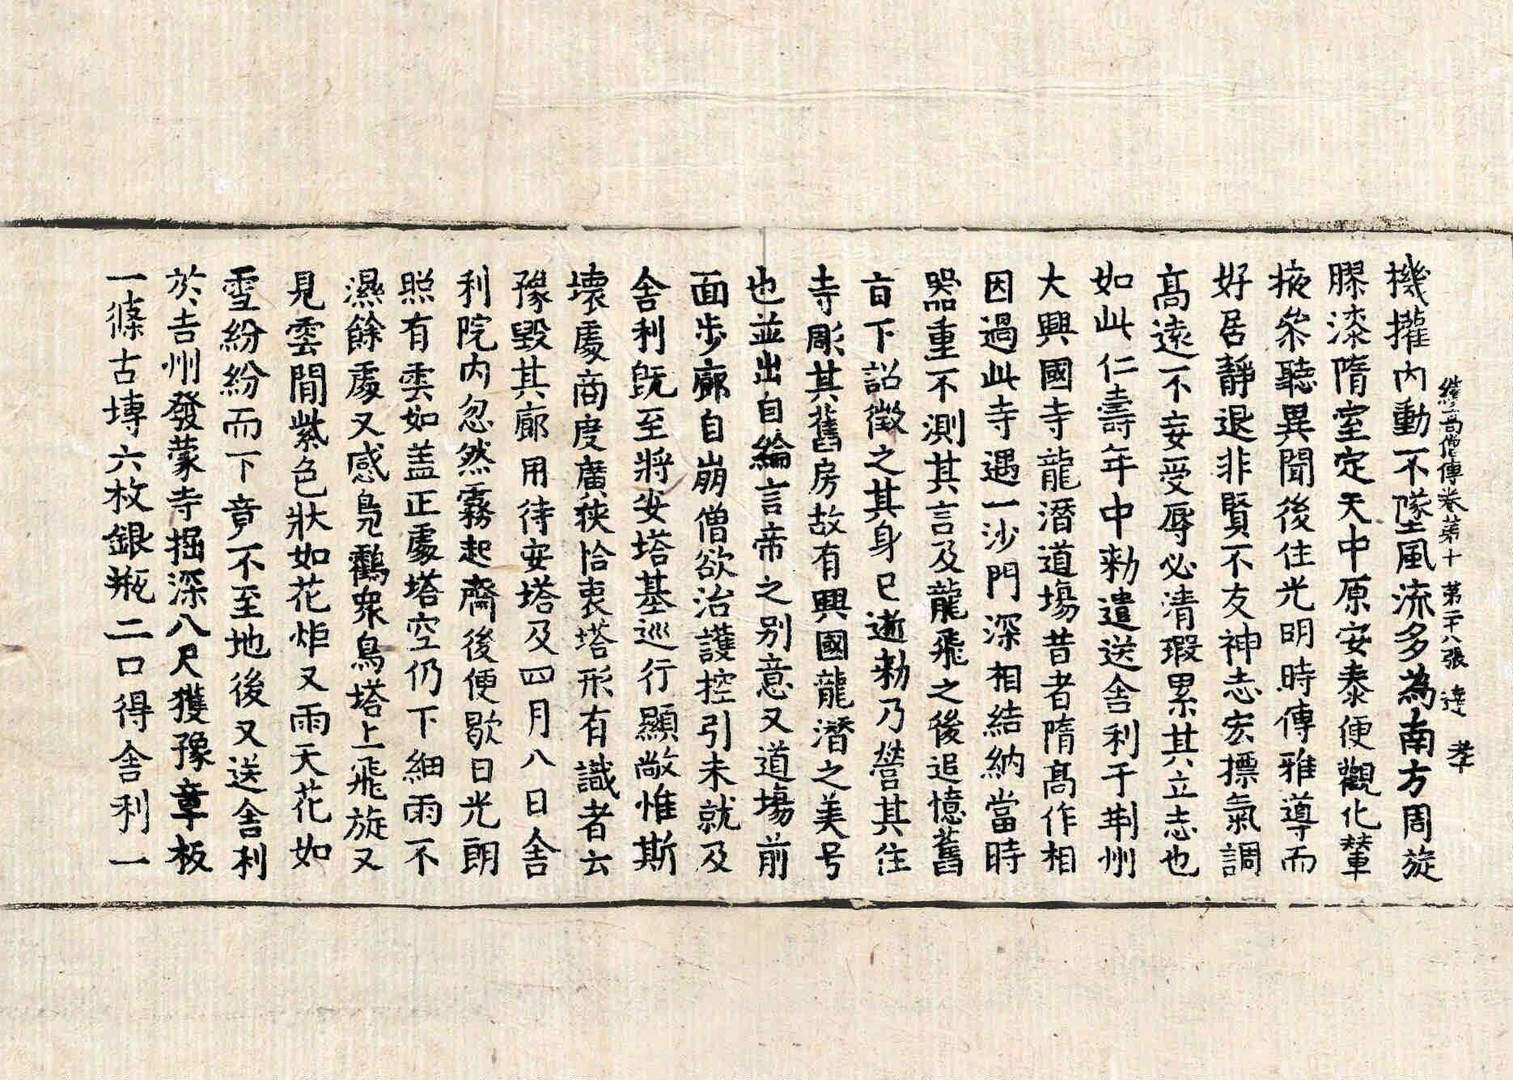 續高僧傳卷第十 第二十八張 達 孝
機擢內動不墜風流多為南方周旋
膠漆隋室定天中原安泰便觀化輦
掖叅聽異聞後住光明時傳雅導而
好居靜退非賢不友神志宏摽氣調
高遠不妄受辱必清瑕累其立志也
如此仁壽年中勑遣送舍利于荆州
大興國寺龍潛道場昔者隋高作相
因過此寺遇一沙門深相結納當時
器重不測其言及龍飛之後追憶舊
旨下詔徵之其身已逝勑乃營其住
寺彫其舊房故有興國龍潛之美号
也並出自綸言帝之别意又道場前
面步廊自崩僧欲治護控引未就及
舍利既至將安塔基巡行顯敞惟斯
壞處商度廣狹恰衷塔形有識者云
豫毀其廊用待安塔及四月八日舍
利院內忽然霧起齋後便歇日光朗
照有雲如盖正處塔空仍下細雨不
濕餘處又感鳧鸛眾鳥塔上飛旋又
見雲間紫色狀如花炬又雨天花如
雪紛紛而下竟不至地後又送舍利
於吉州發蒙寺掘深八尺獲豫章板
一條古塼六枚銀瓶二口得舍利一